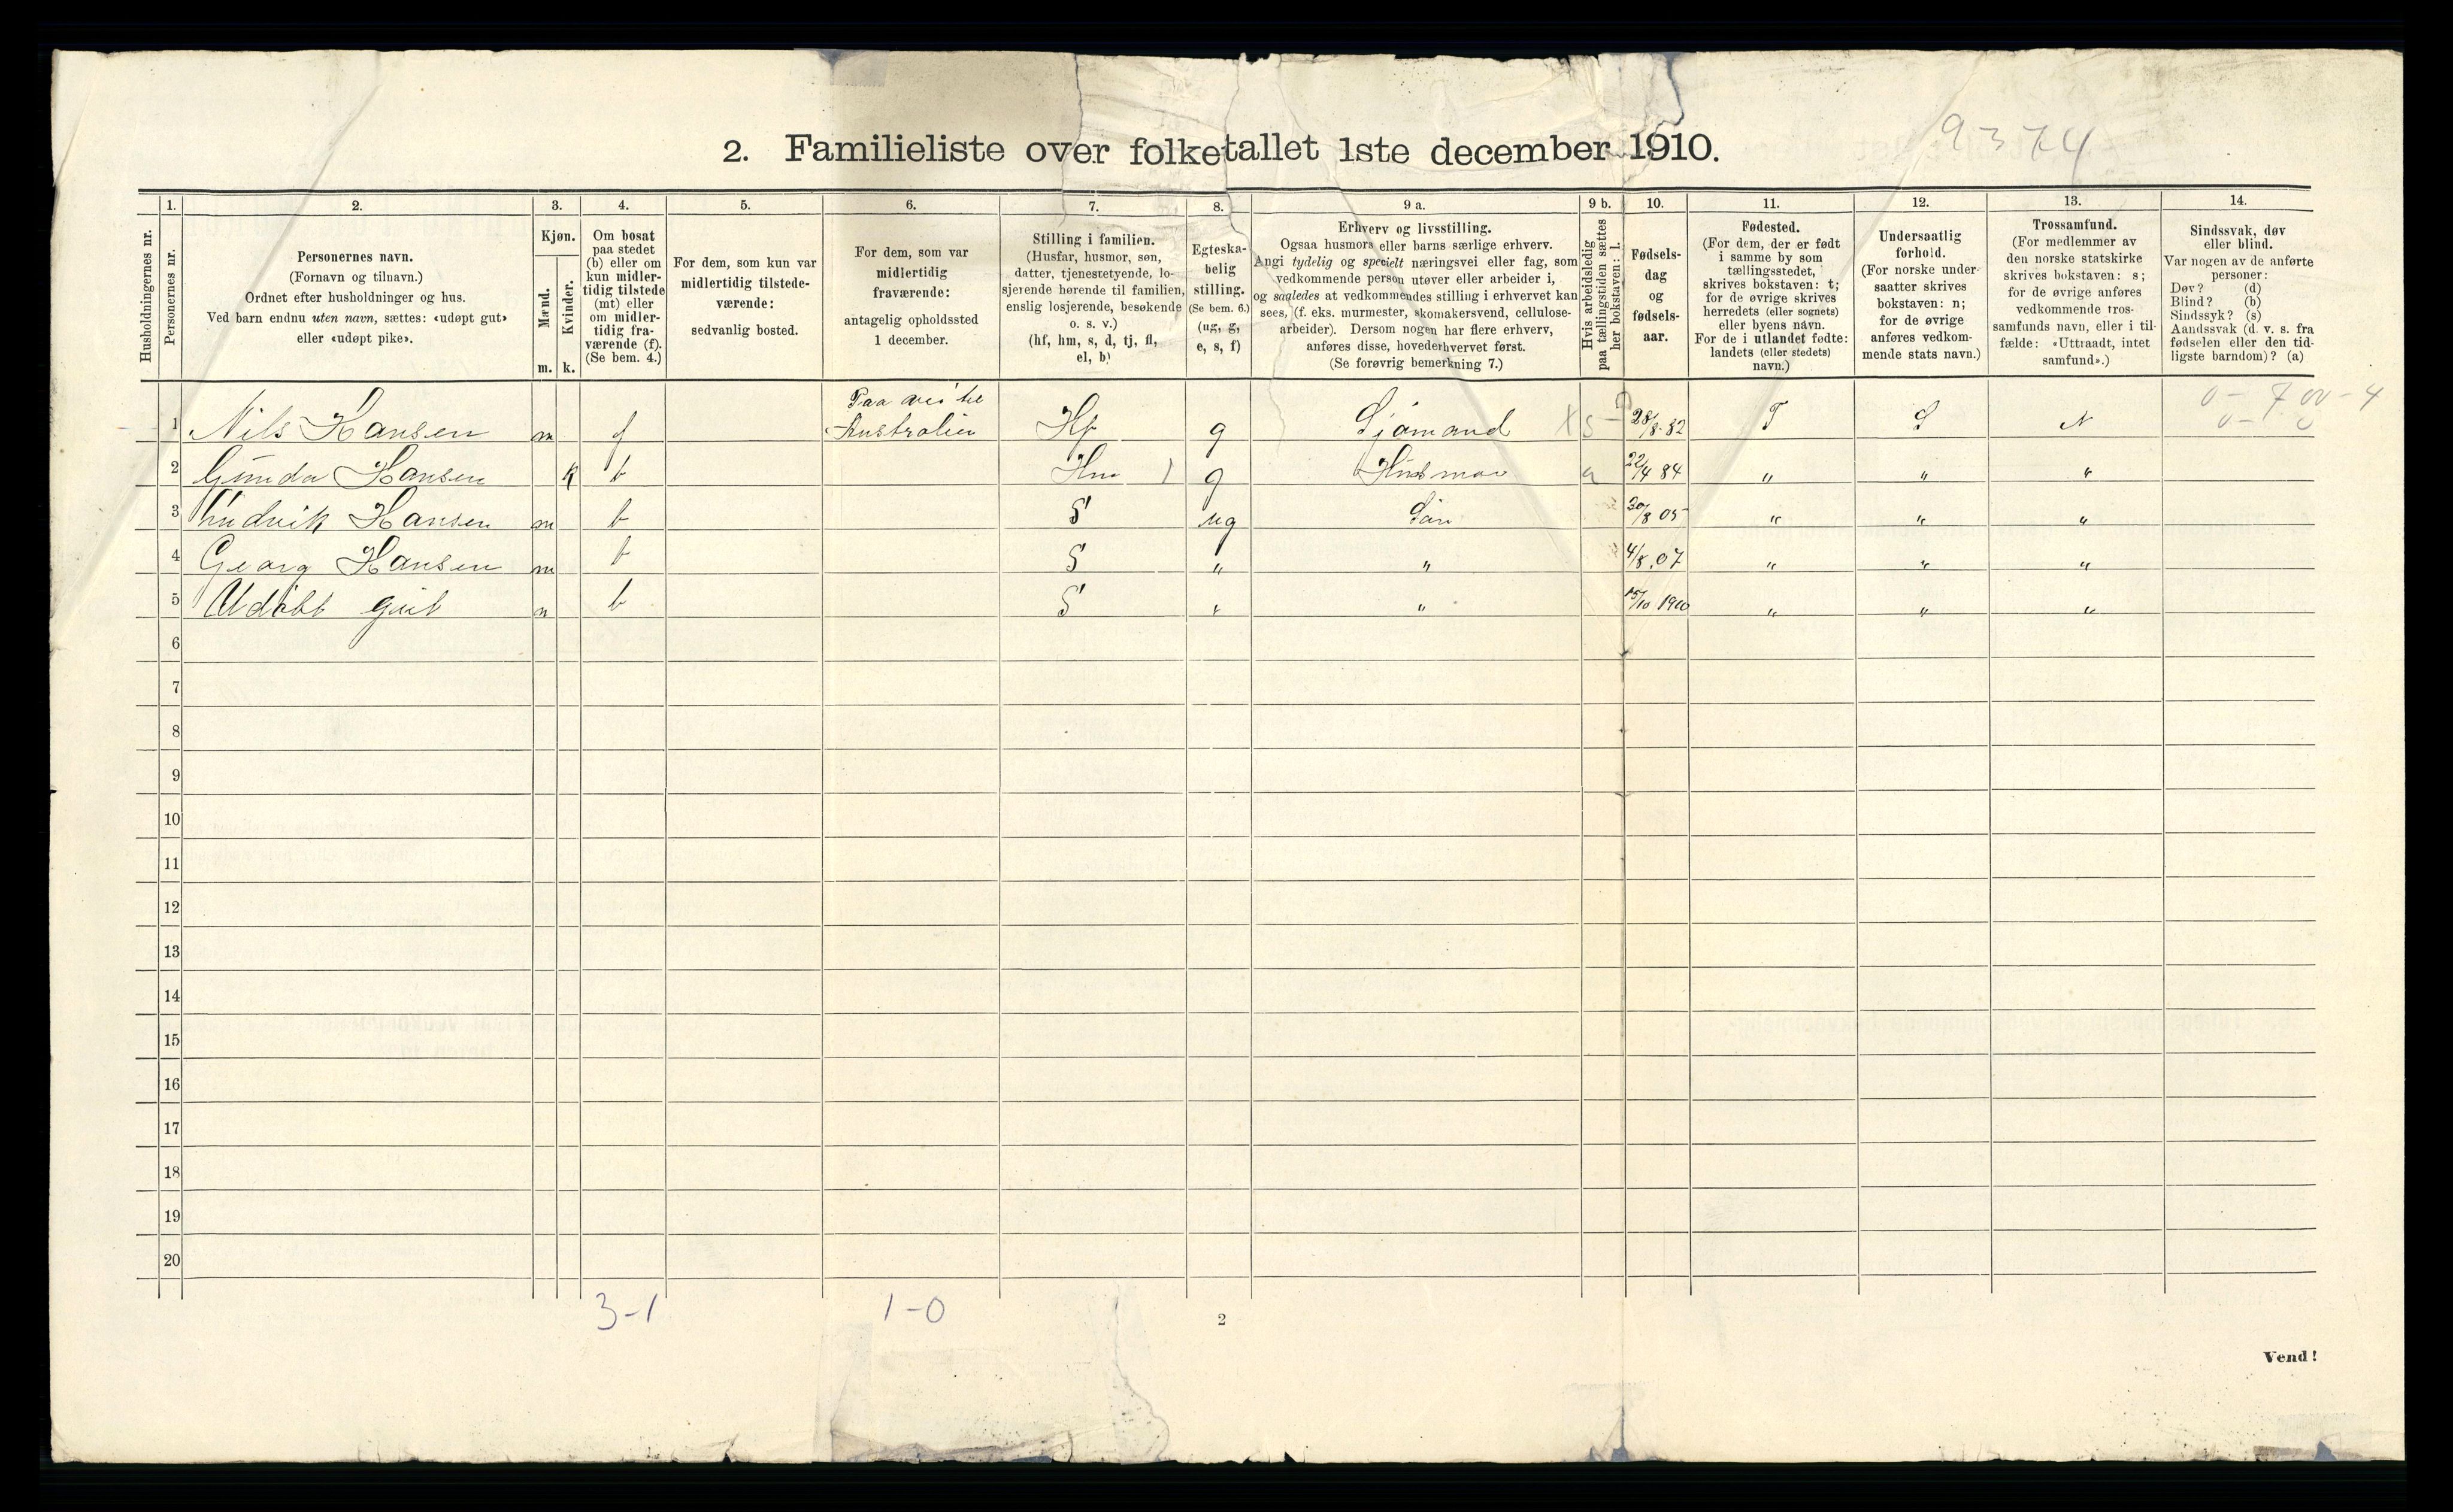 9374
2. Familieliste over folketallet 1ste december 1910.
Husholdningernes nr.
1.
Personernes nr.
2.
Personernes navn.
(Fornavn og tilnavn.)
Ordnet efter husholdninger og hus.
Ved barn endnu uten navn, sættes: «udøpt gut»
eller «udøpt pike».
3.
Kjøn.
Mænd.
Kvinder.
m. k.
4.
Om bosat
paa stedet
(b) eller om
kun midler-
tidig tilstede
(mt) eller
om midler-
tidig fra-
værende (f).
(Se bem. 4.)
5.
For dem, som kun var
midlertidig tilstede-
værende:
sedvanlig bosted.
6.
For dem, som var
midlertidig
fraværende:
antagelig opholdssted
1 december.
7.
Stilling i familien.
(Husfar, husmor, søn,
datter, tjenestetyende, lo-
sjerende hørende til familien,
enslig losjerende, besøkende
o. s. v.)
(hf, hm, s, d, tj, fl,
el, b)
8.
Egteska-
belig
stilling.
(Se bem. 6.)
(ug, g,
e, s, f)
9 a.
Erhverv og livsstilling.
Ogsaa husmors eller barns særlige erhverv.
Angi tydelig og specielt næringsvei eller fag, som
vedkommende person utøver eller arbeider i,
og saaledes at vedkommendes stilling i erhvervet kan
sees, (f. eks. murmester, skomakersvend, cellulose-
arbeider). Dersom nogen har flere erhverv,
anføres disse, hovederhvervet først.
(Se forøvrig bemerkning 7.)
9 b.
Hvis arbeidsledig
paa tællingstiden sættes
her bokstaven: l.
10.
Fødsels-
dag
og
fødsels-
aar.
11.
Fødested.
(For dem, der er født
i samme by som
tællingsstedet,
skrives bokstaven: t;
for de øvrige skrives
herredets (eller sognets)
eller byens navn.
For de i utlandet fødte:
landets (eller stedets)
navn.)
12.
Undersaatlig
forhold.
(For norske under-
saatter skrives
bokstaven: n;
for de øvrige
anføres vedkom-
mende stats navn.)
13.
Trossamfund.
(For medlemmer av
den norske statskirke
skrives bokstaven: s;
for de øvrige anføres
vedkommende tros-
samfunds navn, eller i til-
fælde: «Uttraadt, intet
samfund».)
14.
Sindssvak, døv
eller blind.
Var nogen av de anførte
personer:
Døv? (d)
Blind? (b)
Sindssyk? (s)
Aandssvak (d. v. s. fra
fødselen eller den tid-
ligste barndom)? (a)
1 Nils Hansen m f Paa vei til Australien Hf g Sjømand X s 28/8-82 T S N
2 Gunda Hansen k b Hm g Husmor 22/4 84 " " "
3 Ludvik Hansen m b S ug Søn 30/8 05 " " "
4 Georg Hansen m b S " " 4/8.07 " " "
5 Udöbt gut m b S " " 15/10 1910 " " "
6
7
8
9
10
11
12
13
14
15
16
17
18
19
20
3-1 1-0
2
Vend!